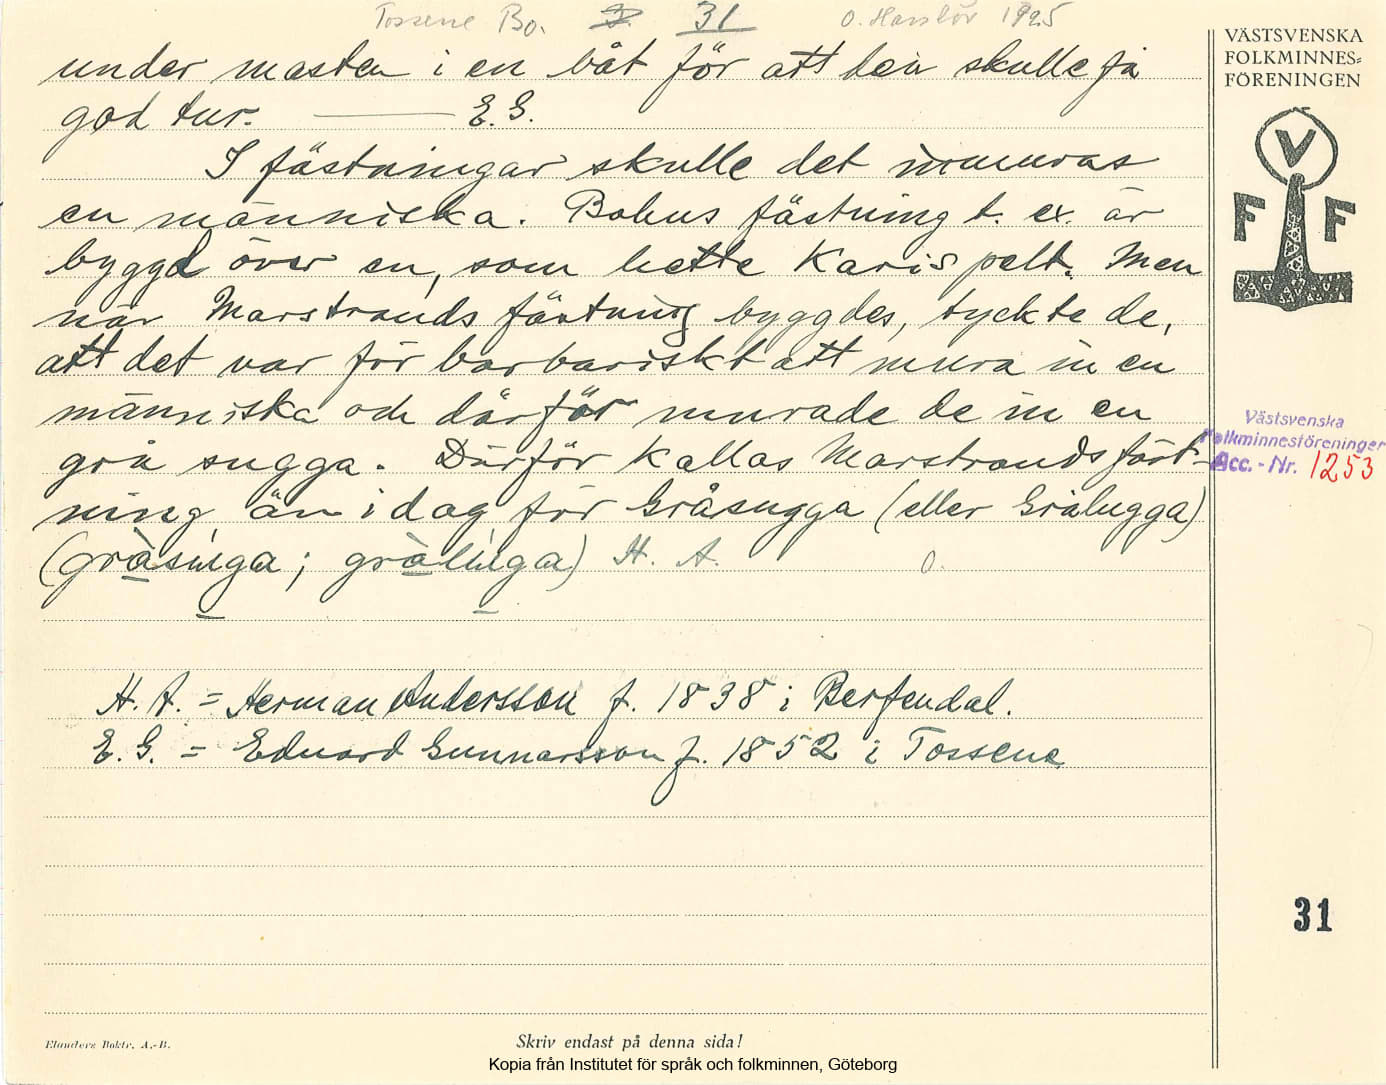 Tossene Bo. 31 O. Harslöv 1925
VÄSTSVENSKA
FOLKMINNES=
FÖRENINGEN
V
F F
under masten i en båt för att den skulle få
god tur. ——— E. G.
I fästningar skulle det inmuras
en människa. Bohus fästning t. ex. är
byggd över en, som hette Karis pelt. Men
när Marstrands fästning byggdes, tyckte de,
att det var för barbariskt att mura in en
människa och därför murade de in en
grå sugga. Därför kallas Marstrands fäst-
ning än idag för Gråsugga (eller Grålugga)
(gràsuga; gràluga) H. A. O.
H. A. = Herman Andersson f. 1838 i Berfendal.
E. G. = Eduard Gunnarsson f. 1852 i Tossene
Västsvenska
Folkminnesföreningen
Acc. - Nr. 1253
31
Elanders Boktr. A.-B.
Skriv endast på denna sida!
Kopia från Institutet för språk och folkminnen, Göteborg